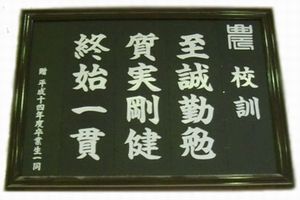 校訓
至誠勤勉
質実剛健
終始一貫
贈 平成十四年度卒業生一同